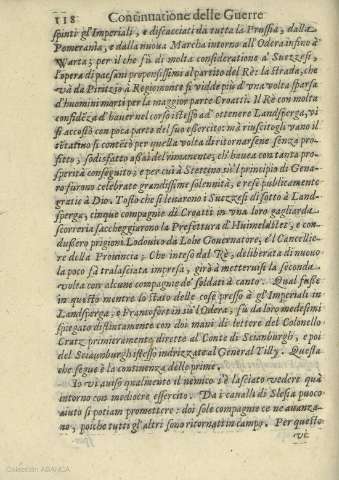 118 Continuatione delle Guerre
spinti gl'Imperiali, e discacciati da tutta la Prussia, dalla
Pomerania, e dalla nuoua Marcha intorno all'Odera infino à
Warta; per il che fù di molta consideratione a' Suezzesi,
l'opera di paesani propensissimi al partito del Rè: la strada, che
và da Piritzio à Regiomonte si vidde più d'vna volta sparsa
d'huomini morti per la maggior parte Croatti. Il Rè con molta
confidēza d'hauer nel corso istesso ad ottenere Landsperga, vi
si accostò con poca parte del suo essercito: mà riuscitogli vano il
tētatiuo si contētò per quella volta di ritornarsene senza pro-
fitto, sodisfatto assai del rimanente, ch'haueua con tanta pro-
sperità conseguito; e per ciò à Stetteno sù'l principio di Gena-
ro furono celebrate grandissime solennità, e rese publicamente
gratie à Dio. Tosto che si leuarono i Suezzesi di sotto à Land-
sperga, cinque compagnie di Croatti in vna loro gagliarda
scorreria saccheggiarono la Prefettura d'Huimelstet, e con-
dussero prigioni Lodouico da Lohe Gouernatore, e'l Cancellie-
re della Prouincia; Che inteso dal Rè, deliberata di nuouo
la poco fà tralasciata impresa, girò à metteruisi la seconda
volta con alcune compagnie de' soldati à canto. Qual fusse
in questo mentre lo stato delle cose presso à gl'Imperiali in
Landsperga, e Francofort in sù l'Odera, fù da loro medesimi
spiegato distintamente con doi mani di lettere del Colonello
Cratz primieramente dirette al Conte di Scianburgh, e poi
del Sciaumburgh istesso indrizzate al General Tilly. Questa
che segue è la continenza delle prime.
Io vi auiso qualmente il nemico s'è lasciato vedere quà
intorno con mediocre essercito. Da i caualli di Slesia puoco
aiuto si potiam promettere: doi sole compagnie ce ne auanza-
no, poiche tutti gl'altri sono ritornati in campo. Per questo
vi
Colección ABANCA